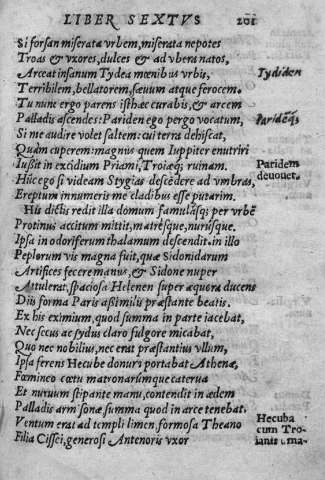 LIBER SEXTVS 201
Si forsan miserata vrbem, miserata nepotes
Troas & vxores, dulces & ad vbera natos,
Arceat insanum Tydea mœnibus vrbis,
Tydiden
Terribilem, bellatorem, sæuum atque ferocem.
Tu nunc ergo parens isthæc curabis, & arcem
Palladis ascendes: Pariden ego pergo vocatum,
Paridēq;
Si me audire volet saltem: cui terra dehiscat,
Quàm cuperem: magnus quem Iuppiter enutriri
Iußit in excidium Priami, Troiæq; ruinam.
Paridem
deuouet.
Huc ego si videam Stygias descēdere ad vmbras,
Ereptum innumeris me cladibus esse putarim.
His dictis redit illa domum famulásq; per vrbē
Protinus accitum mittit, matrésque, nurúsque.
Ipsa in odoriferum thalamum descendit. in illo
Peplorum vis magna fuit, quæ Sidonidarum
Artifices fecere manus, & Sidone nuper
Attulerat, spaciosa Helenen super æquora ducens
Diis forma Paris aßimilis præstante beatis.
Ex his eximium, quod summa in parte iacebat,
Nec secus ac sydus claro fulgore micabat,
Quo nec nobilius, nec erat præstantius vllum,
Ipsa ferens Hecube donum portabat Athenæ,
Fœmineo cœtu matronarúmque caterua
Et nuruum stipante manu, contendit in ædem
Palladis armisonæ summa quod in arce tenebat.
Ventum erat ad templi limen, formosa Theano
Hecuba
cum Tro-
ianis ma-
Filia Cissei, generosi Antenoris vxor